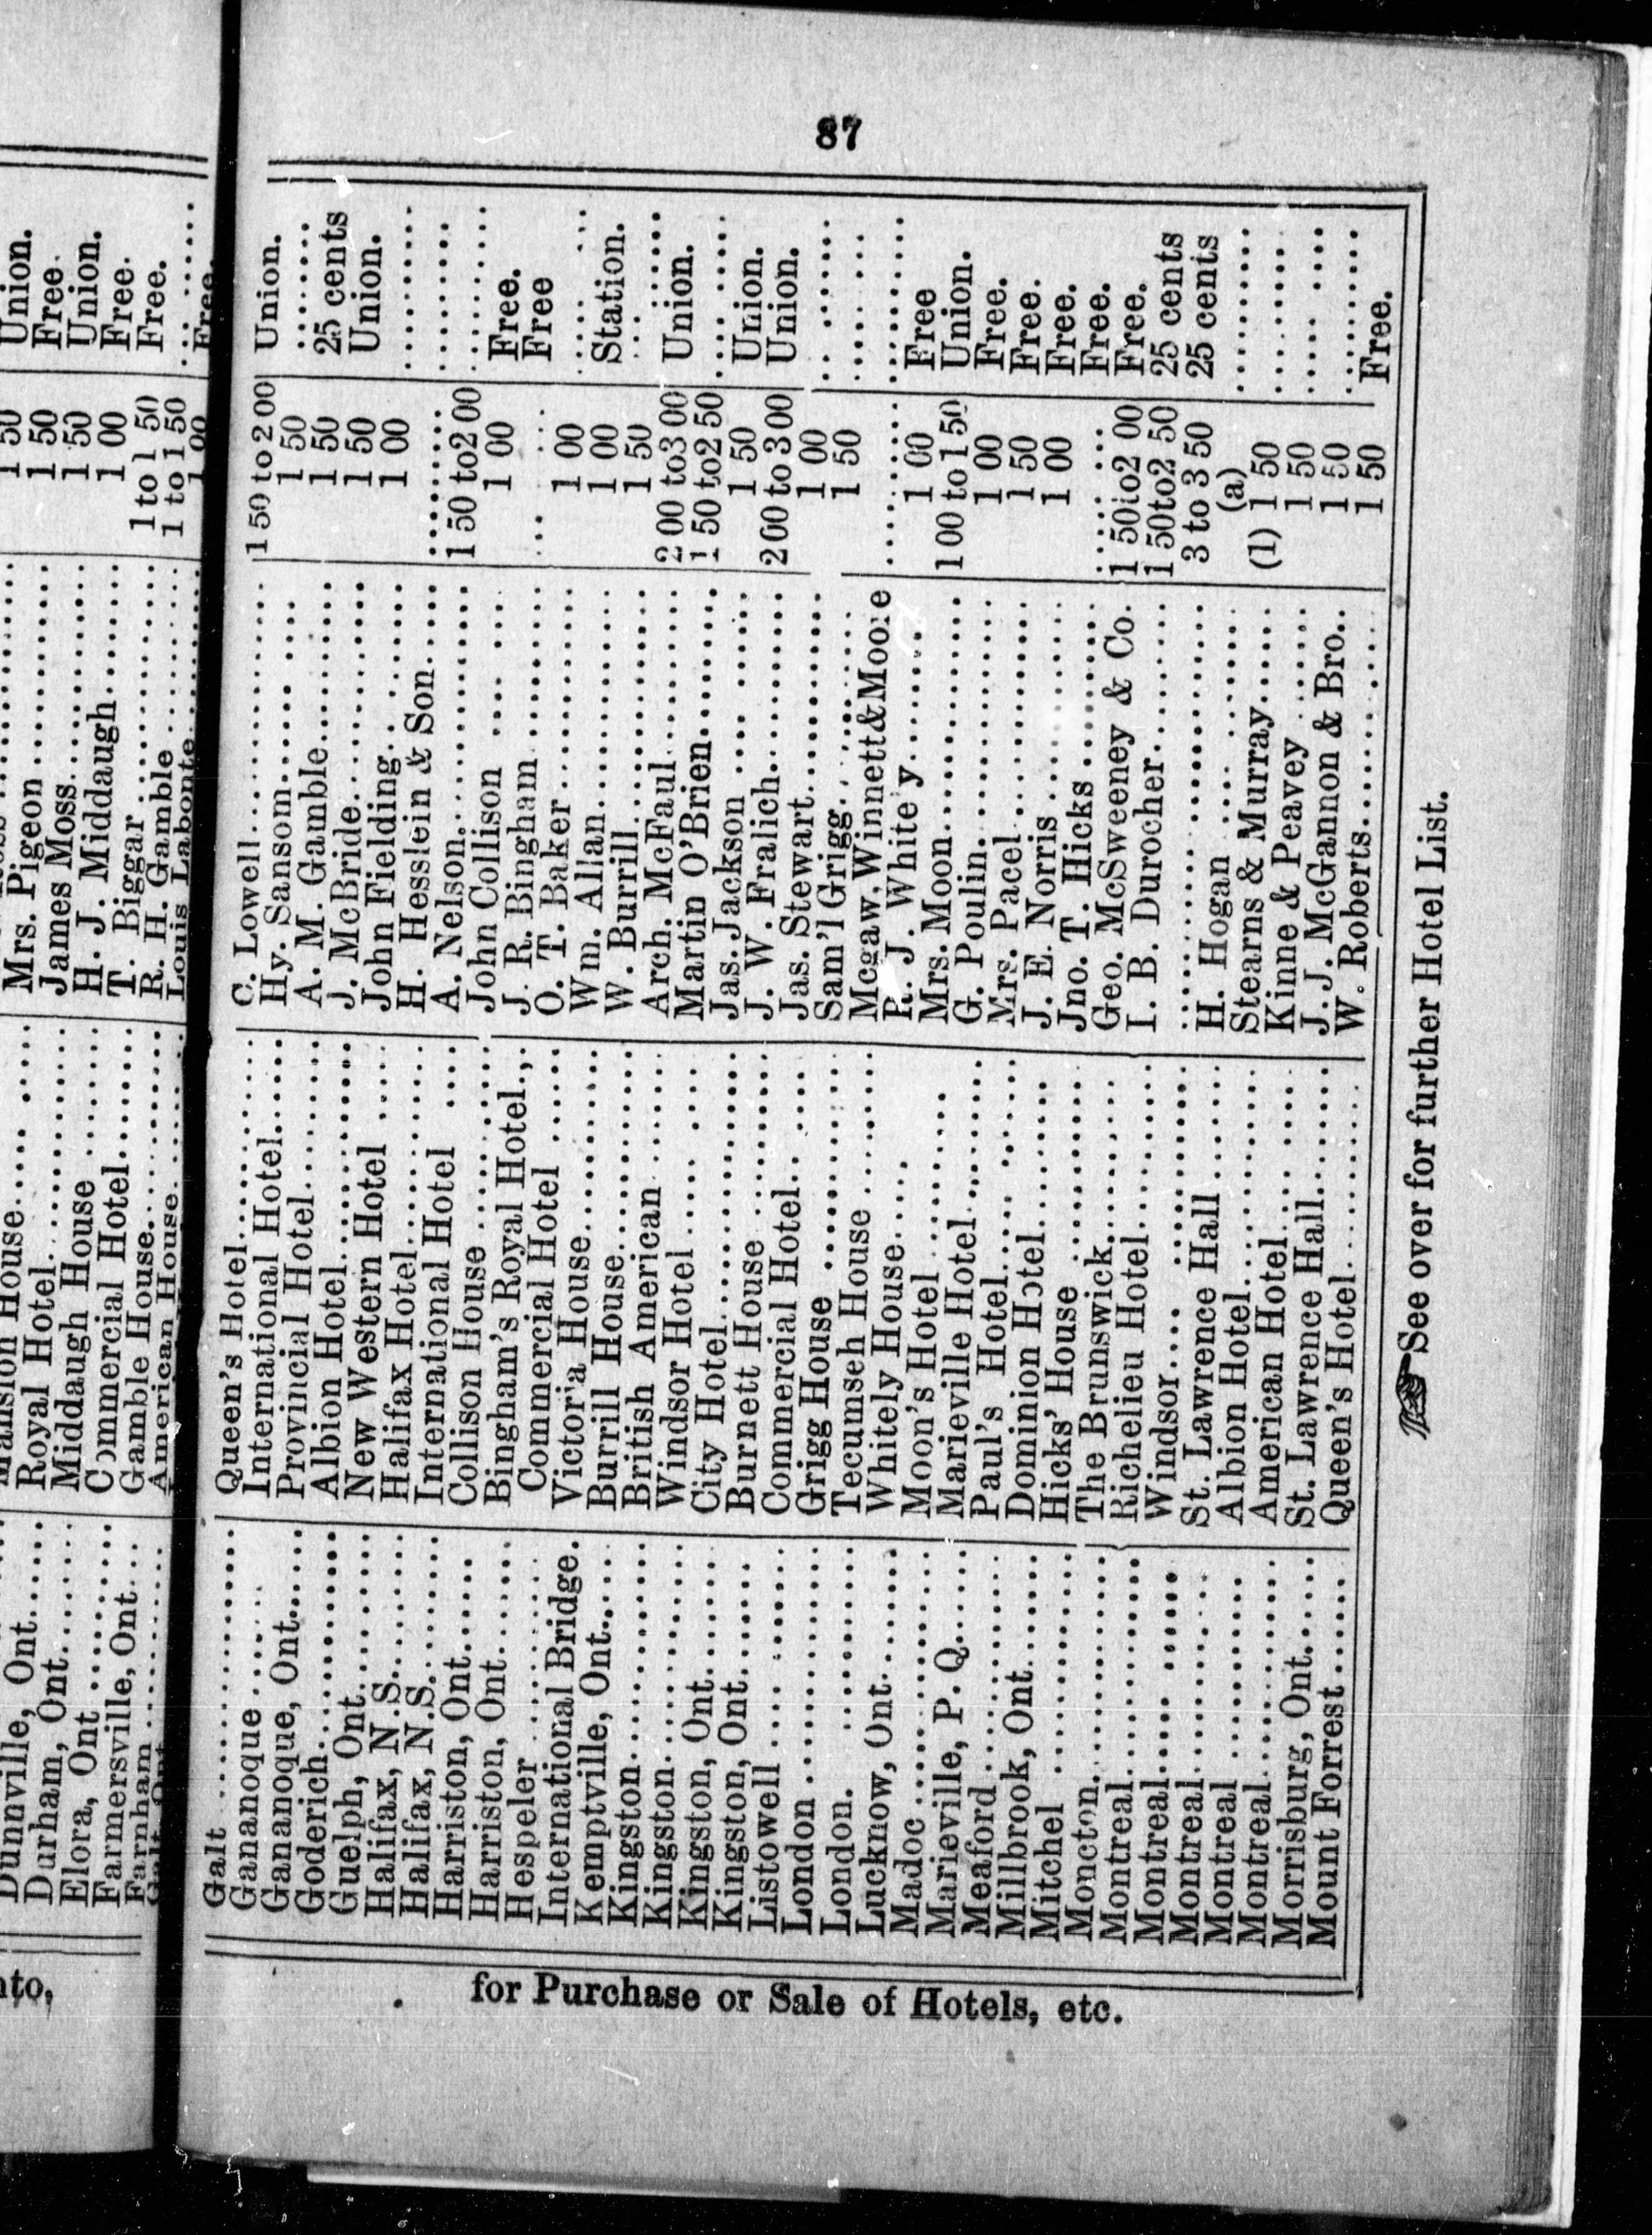 House Mrs. Pigeon 1 50 Free
Dunnville, Ont Royal Hotel James Moss 1 50 Union.
Durham, Ont Middaugh House H. J. Middaugh 1 00 Free.
Elora, Ont Commercial Hotel T. Biggar 1 to 1 50 Free.
Farmersville, Ont Gamble House R. H. Gamble 1 to 1 50
Farnham American House Louis Labonte 1 00 Free.
87
Galt Queen's Hotel C. Lowell 1 50 to 2 00 Union.
Gananoque International Hotel Hy. Sansom 1 50
Gananoque, Ont. Provincial Hotel A. M. Gamble 1 50 25 cents
Goderich Albion Hotel J. McBride 1 50 Union.
Guelph, Ont. New Western Hotel John Fielding 1 00
Halifax, N.S. Halifax Hotel H. Hesslein & Son
Halifax, N.S. International Hotel A. Nelson 1 50 to2 00
Harriston, Ont. Collison House John Collison 1 00 Free.
Harriston, Ont Bingham's Royal Hotel J. R. Bingham Free
Hespeler Commercial Hotel O. T. Baker 1 00
International Bridge. Victoria House Wm. Allan 1 00 Station.
Kemptville, Ont. Burrill House W. Burrill 1 50
Kingston British American Arch. McFaul 2 00 to3 00 Union.
Kingston Windsor Hotel Martin O'Brien 1 50 to2 50
Kingston, Ont. City Hotel Jas. Jackson 1 50 Union.
Kingston, Ont. Burnett House J. W. Fralich 2 00 to 3 00 Union.
Listowell Commercial Hotel Jas. Stewart 1 00
London Grigg House Sam'l Grigg 1 50
London. Tecumseh House Mcgaw, Winnett&Moore
Lucknow, Ont. Whitely House R. J. White'y 1 00 Free
Madoc Moon's Hotel Mrs. Moon 1 00 to 1 50 Union.
Marieville, P. Q. Marieville Hotel G. Poulin 1 00 Free.
Meaford Paul's Hotel Mrs. Pacel 1 50 Free.
Millbrook, Ont. Dominion Hotel J. E. Norris 1 00 Free.
Mitchel Hicks' House Jno. T. Hicks Free.
Moncton The Brunswick Geo. McSweeney & Co. 1 50to2 00 Free.
Montreal Richelieu Hotel I. B. Durocher 1 50to2 50 25 cents
Montreal Windsor 3 to 3 50 25 cents
Montreal St. Lawrence Hall H. Hogan (a)
Montreal Albion Hotel Stearns & Murray (1) 1 50
Montreal American Hotel Kinne & Peavey 1 50
Morrisburg, Ont. St. Lawrence Hall J. J. McGannon & Bro. 1 50
Mount Forrest Queen's Hotel W. Roberts 1 50 Free.
See over for further Hotel List.
for Purchase or Sale of Hotels, etc.